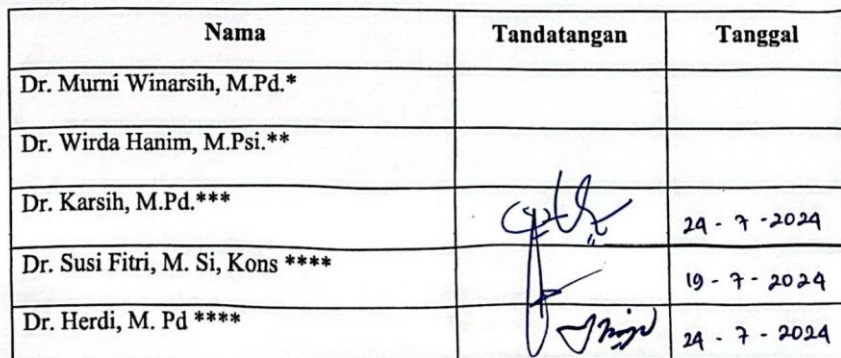 Nama Tandatangan Tanggal
Dr. Murni Winarsih, M.Pd.*
Dr. Wirda Hanim, M.Psi.**
Dr. Karsih, M.Pd.*** 24 - 7 - 2024
Dr. Susi Fitri, M. Si, Kons **** 19 - 7 - 2024
Dr. Herdi, M. Pd **** 24 - 7 - 2024